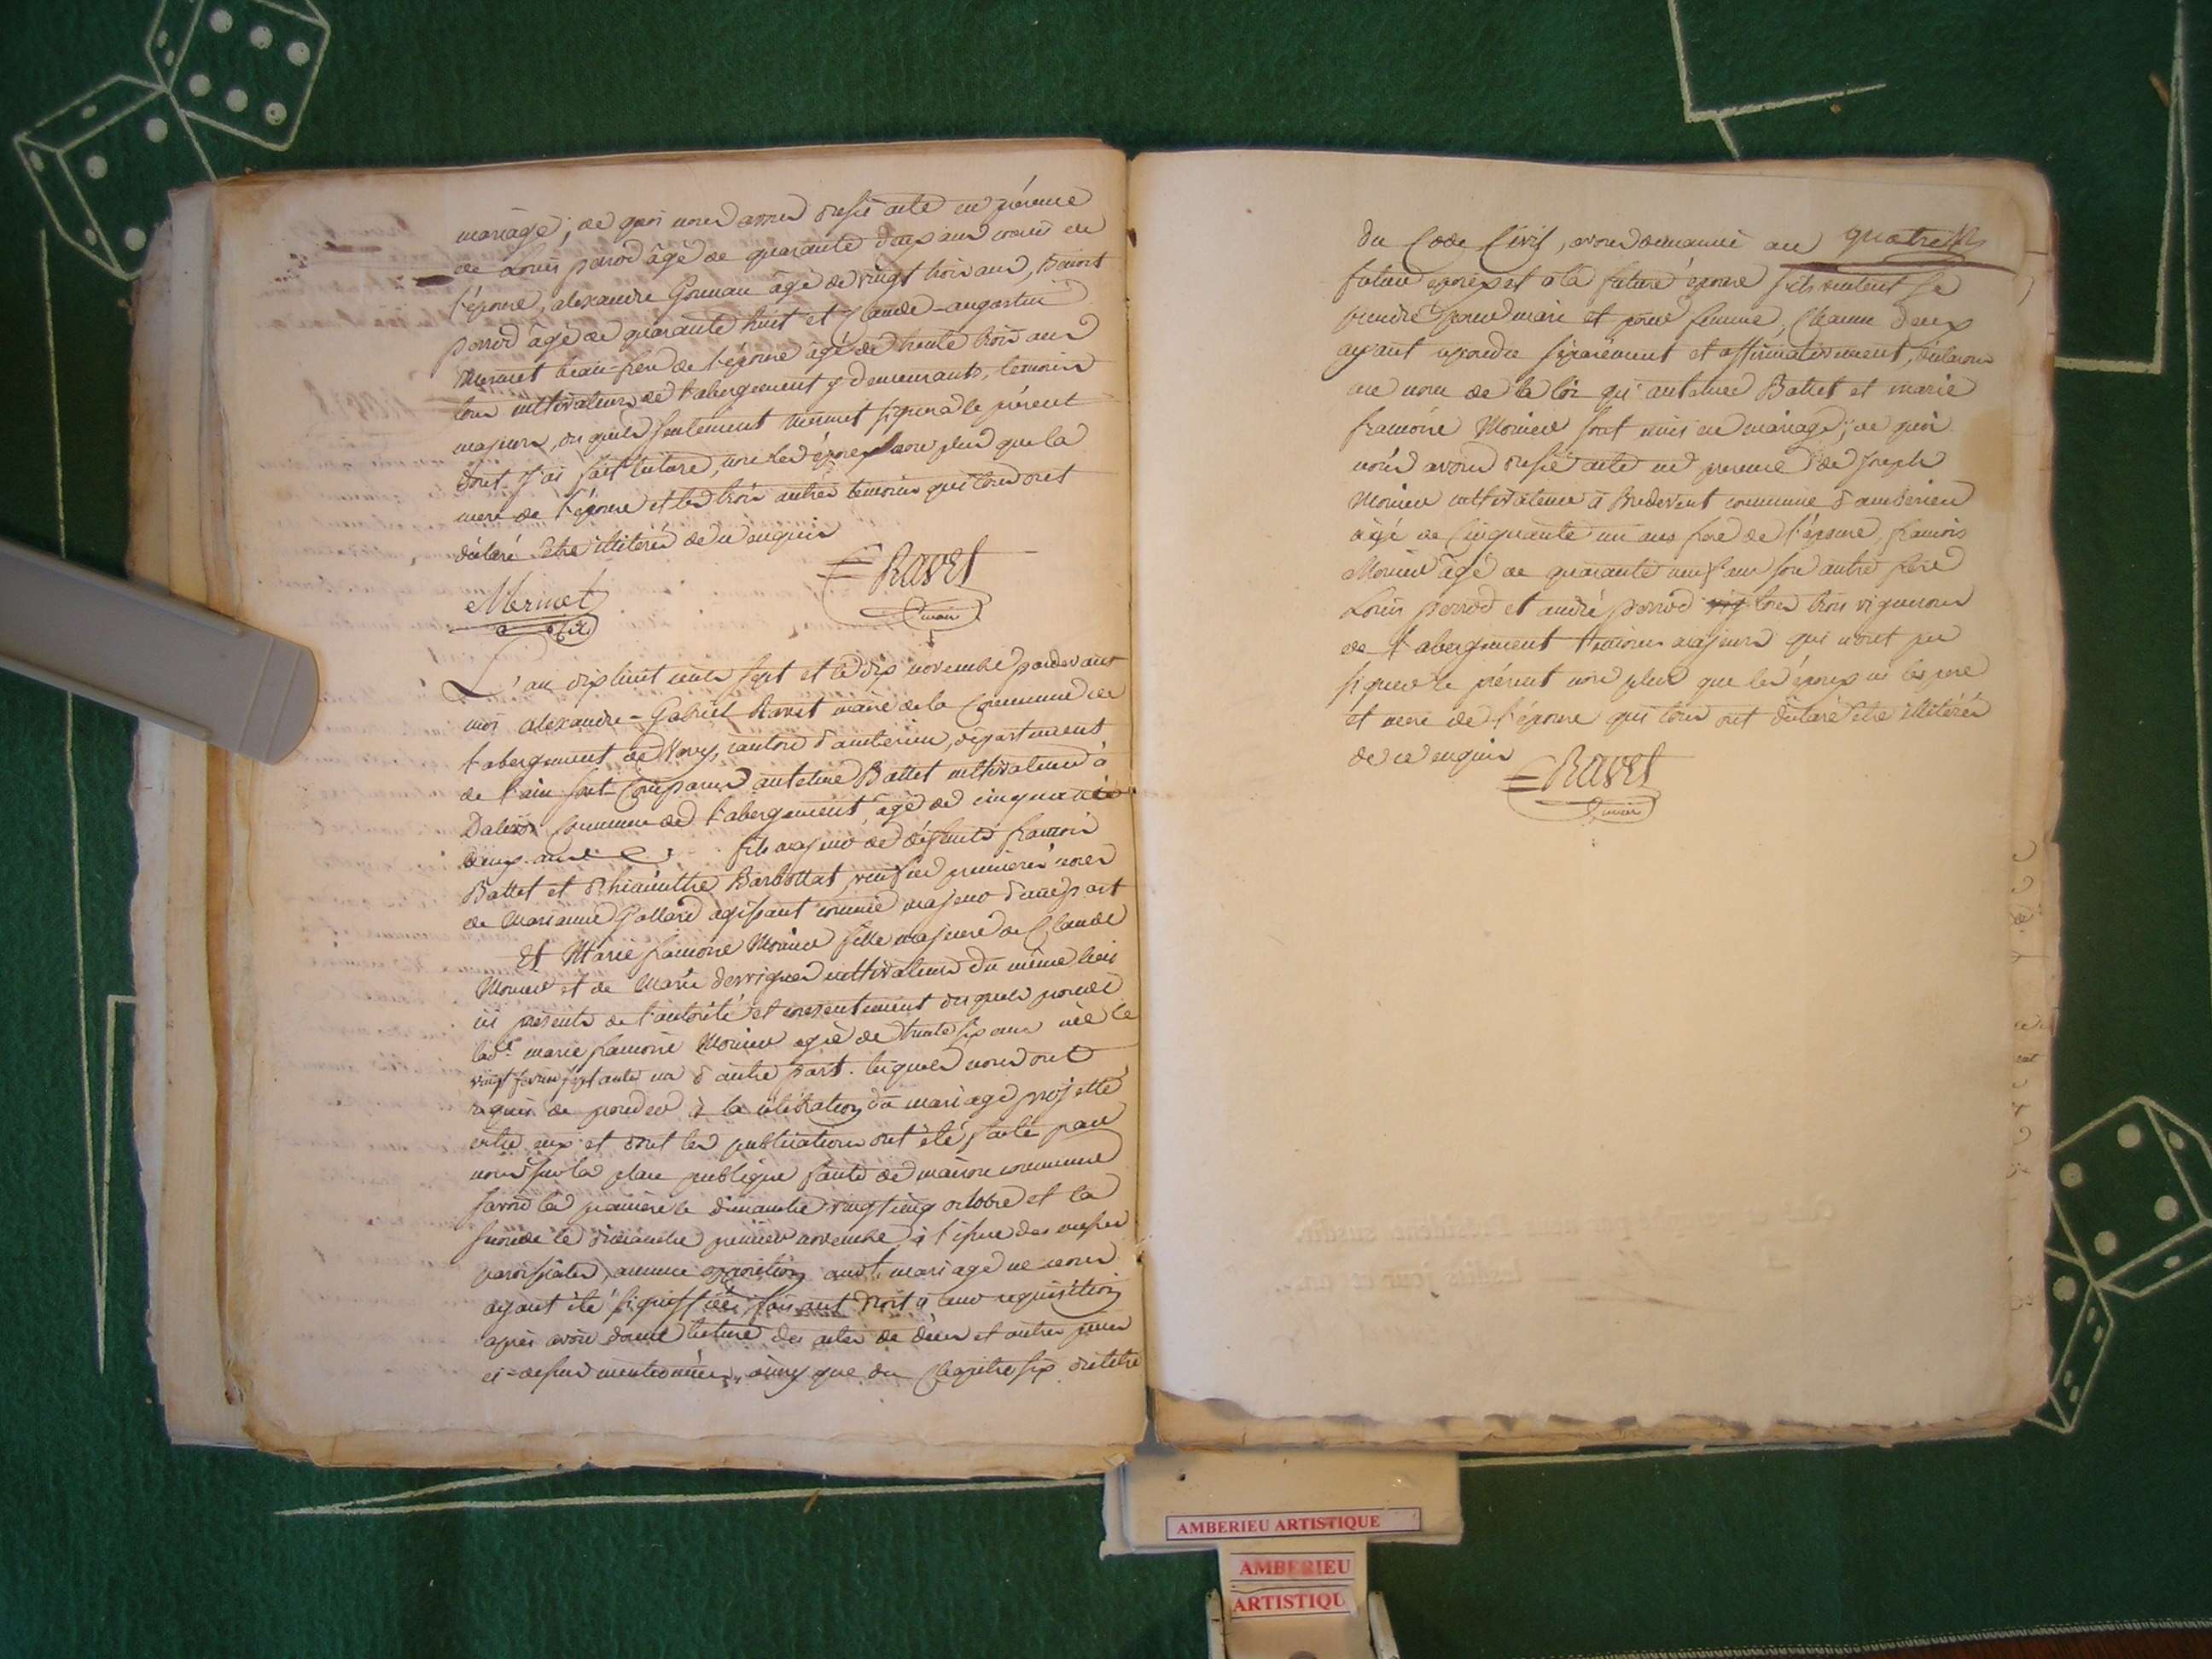 mariage; de quoi nous avons dressé acte en présence
de Louis perrod âgé de quarante deux ans oncle de
l'épouse, alexandre Gonnan âgé de vingt trois ans, benoit
perrod âgé de quarante huit et Claude-augustin
Mermet beau-frere de l'épouse âgé de trente trois ans
tous cultivateurs de l'abergement y demeurants, temoins
majeurs, desquels seulement Mermet signera le présent
dont j'ai fait lecture, non les époux non plus que la
mere de l'épouse et les trois autres temoins qui tous ont
déclaré etre illiterés de ce enquis
Mermet
Ravet
maire
L'an dix huit cents sept et le dix novembre pardevant
moi alexandre-Gabriel Ravet maire de la Commune de
l'abergement de Varey, canton d'amberieu, département
de l'ain sont comparus antelme Battet cultivateur à
Dalivoi Commune de l'abergement, âgé de cinquante
deux ans fils majeur de défunts francois
Battet et Phiacinthe Barbollat, veuf en premieres noces
de Marianne Gallard agissant comme majeur d'une part
Et Marie francoise Monier fille majeure de Claude
Monier et de Marie Derrignes cultivateurs du même lieu
ici présents de l'autorité et consentement desquels procede
lad.e marie francoise Monier agée de trente six ans née le
vingt fevrier septante un d'autre part. lesquels nous ont
requis de proceder à la célébration du mariage projetté
entre eux et dont les publications ont été faite par
nous sur la place publique faute de maison commune
savoir la premiere le dimanche vingt cinq octobre et la
seconde le dimanche premier novembre à l'issue des messes
paroissiales, aucune opposition aud.t mariage ne nous
ayant été signiffiée, faisant droit à leur requisition
après avoir donné lecture des actes de décès et autres pieces
ci-dessus mentionnées, ainsy que du Chapitre six du titre
quatre
du Code Civil, avons demandé au
futur epoux et a la future épouse s'ils veulent se
prendre pour mari et pour femme, Chacun d'eux
ayant repondu séparément et affirmativement, déclarons
au nom de la loi qu'antelme Battet et marie
francoise Monier sont unis en mariage; de quoi
nous avons dressé acte en presence de Joseph
Monier cultivateur à Bredevent commune d'amberieu
âgé de Cinquante un ans frere de l'épouse, francois
Monier âgé de quarante neuf ans son autre frere
Louis perrod et andré perrod tous trois vignerons
de l'abergement temoins majeurs qui n'ont pu
signer le présent non plus que les époux ni les pere
et mere de l'épouse qui tous ont déclaré etre illiterés
de ce enquis
Ravet
maire
AMBERIEU ARTISTIQUE
AMBERIEU
ARTISTIQU